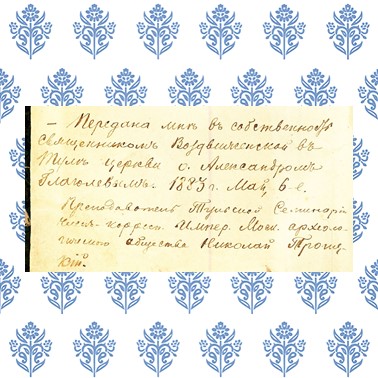 — Передана мнѣ въ собственность
священникомъ Воздвиженской въ
Тулѣ церкви о. Александромъ
Глаголевымъ. 1883 г. Май, 6-е.
Преподаватель Тульской Семинаріи
Член-корресп. Импер. Моск. археоло-
гическаго общества Николай Троиц-
кій.